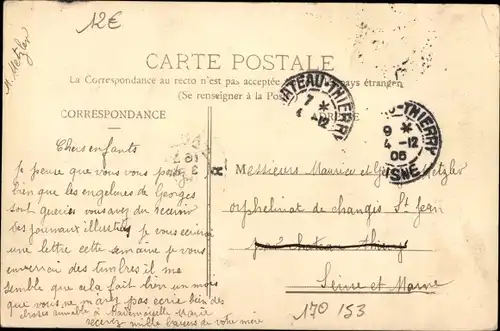 M. Metzler
12€
CARTE POSTALE
La Correspondance au recto n'est pas acceptée pays étrangers
(Se renseigner à la Pos
CORRESPONDANCE
ADRESSE
CHATEAU-THIERRY
7 *
4 -12
CHATEAU-THIERRY
9 *
4 -12
05
AISNE
Chers enfants
je pense que vous vous portez
bien que les engelures de Georges
sont guéries vous avez du recevoir
des journaux illustrés je vous écrirai
une lettre cette semaine je vous
enverrai des timbres il me
semble que cela fait bien un mois
que vous ne m'avez pas écrit bien des
choses aimable à Mademoiselle Marie
recevez mille baisers de votre mère
Messieurs Maurice et Georges Metzler
orphelinat de changis St Jean
par chateau thierry
Seine et Marne
170 153